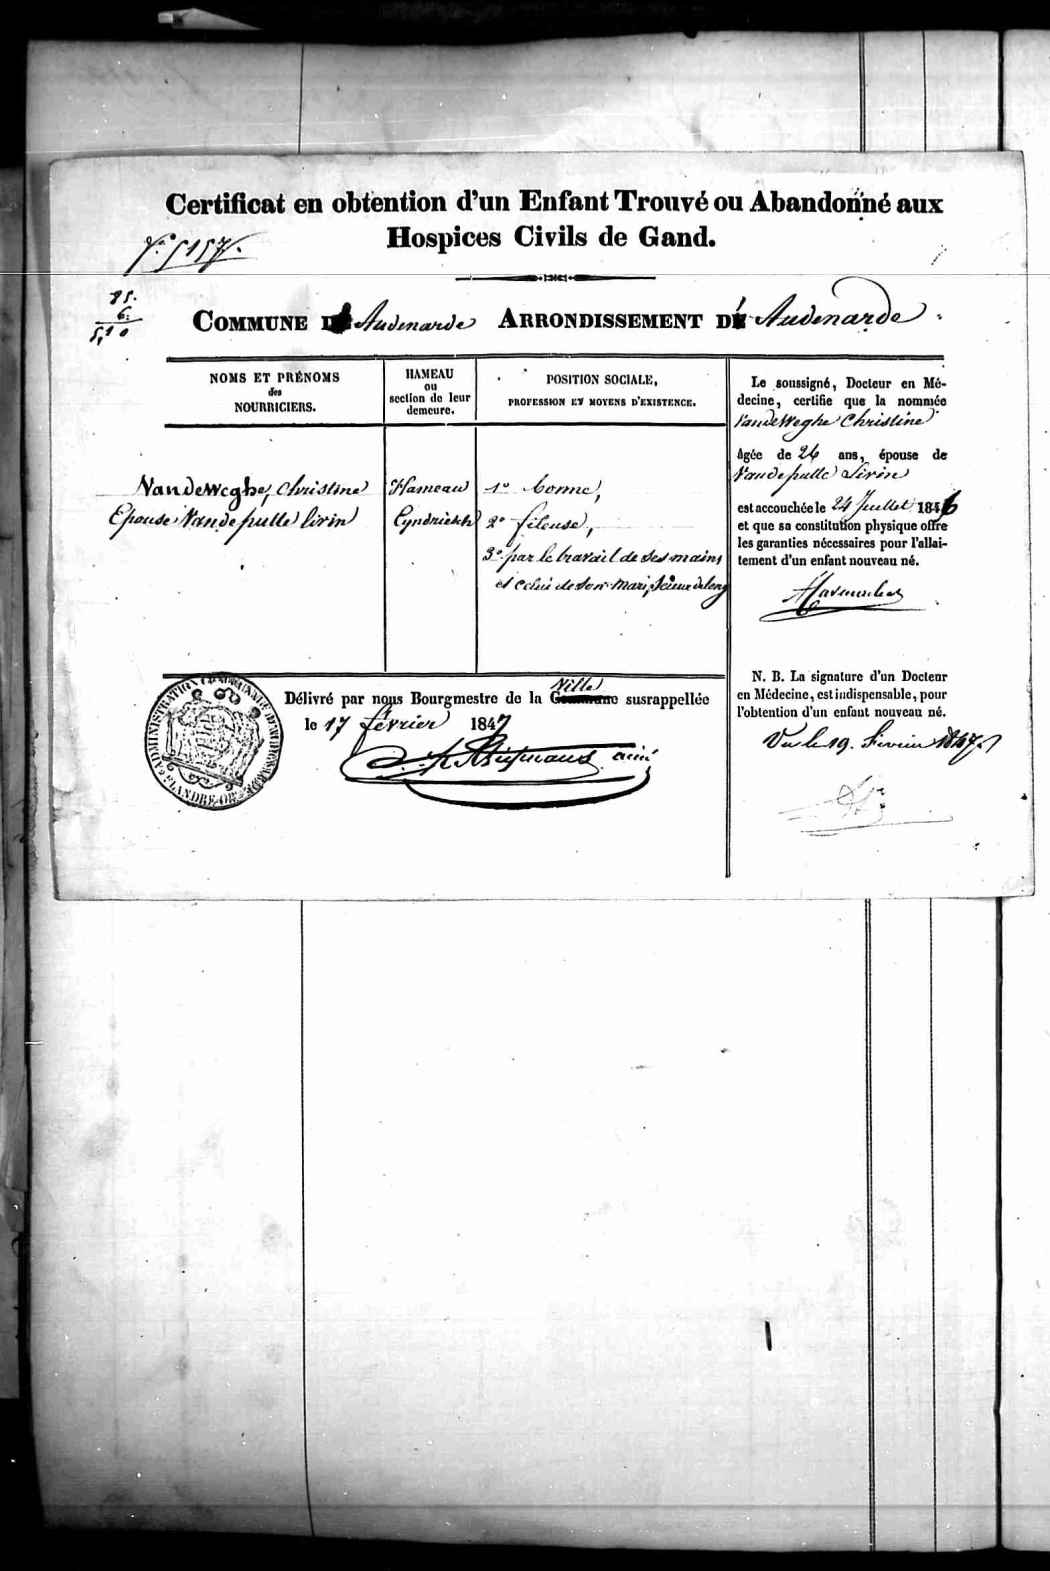 Certificat en obtention d'un Enfant Trouvé ou Abandonné aux
Hospices Civils de Gand.
N.° 5157.
85.
6.
5,10
COMMUNE D' Audenarde ARRONDISSEMENT D' Audenarde.
NOMS ET PRÉNOMS
des
NOURRICIERS.
HAMEAU
ou
section de leur
demeure.
POSITION SOCIALE,
PROFESSION ET MOYENS D'EXISTENCE.
Vandeweghe, Christine
Epouse Vandeputte Livin
Hameau
Eyndriesch
1° bonne,
2° fileuse,
3° par le travail de ses mains
et celui de son mari, Scieur de long
Le soussigné, Docteur en Mé-
decine, certifie que la nommée
VandeWeghe Christine
âgée de 26 ans, épouse de
Vandeputte Livin
est accouchée le 24 Juillet 1846
et que sa constitution physique offre
les garanties nécessaires pour l'allai-
tement d'un enfant nouveau né.
N. B. La signature d'un Docteur
en Médecine, est indispensable, pour
l'obtention d'un enfant nouveau né.
Vu le 19. Février 1847
Ville
Délivré par nous Bourgmestre de la Commune susrappellée
le 17 février 1847
ainé
ADMINISTRATION COMMUNALE D'AUDENARDE
FLANDRE OR.